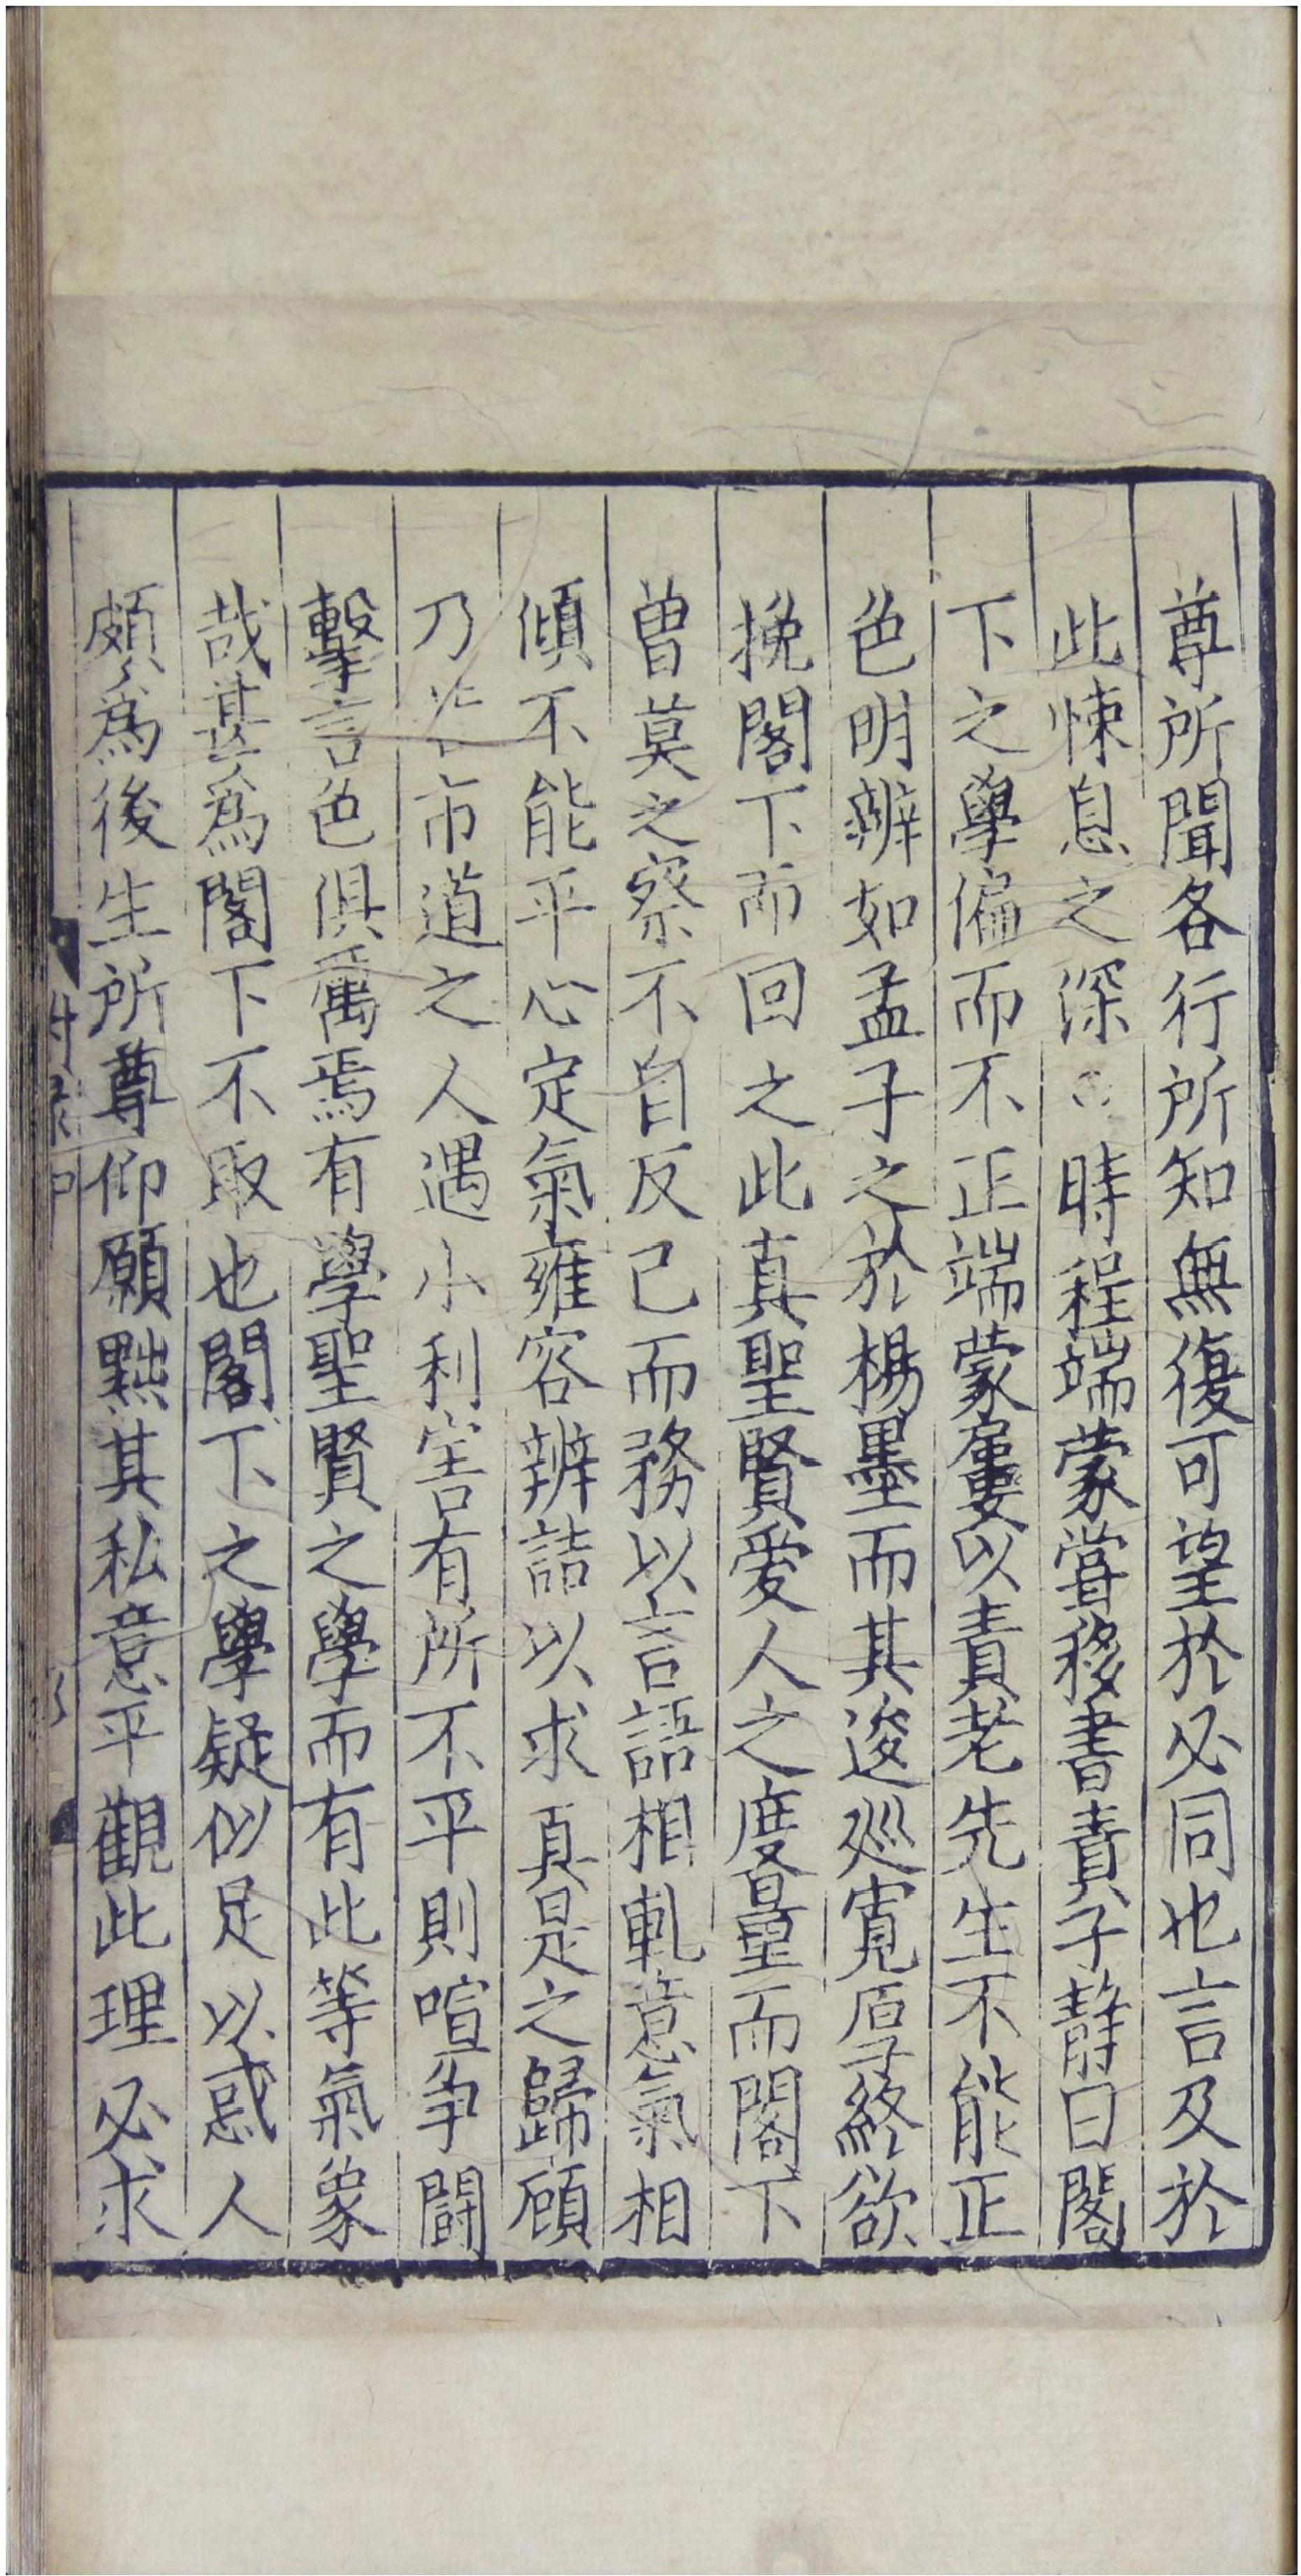 尊所聞各行所知無復可望於必同也言及於
此悚息之深時程端蒙嘗移書責子靜曰閣
下之學偏而不正端蒙屢以責老先生不能正
色明辨如孟子之於楊墨而其逡巡寬厚終欲
挽閣下而回之此真聖賢愛人之度量而閣下
曾莫之察不自反己而務以言語相軋意氣相
傾不能平心定氣雍容辨詰以求真是之歸顧
乃市道之人遇小利害有所不平則喧爭鬪
擊言色俱厲焉有學聖賢之學而有此等氣象
哉甚為閣下不取也閣下之學疑似足以惑人
頗為後生所尊仰願黜其私意平觀此理必求